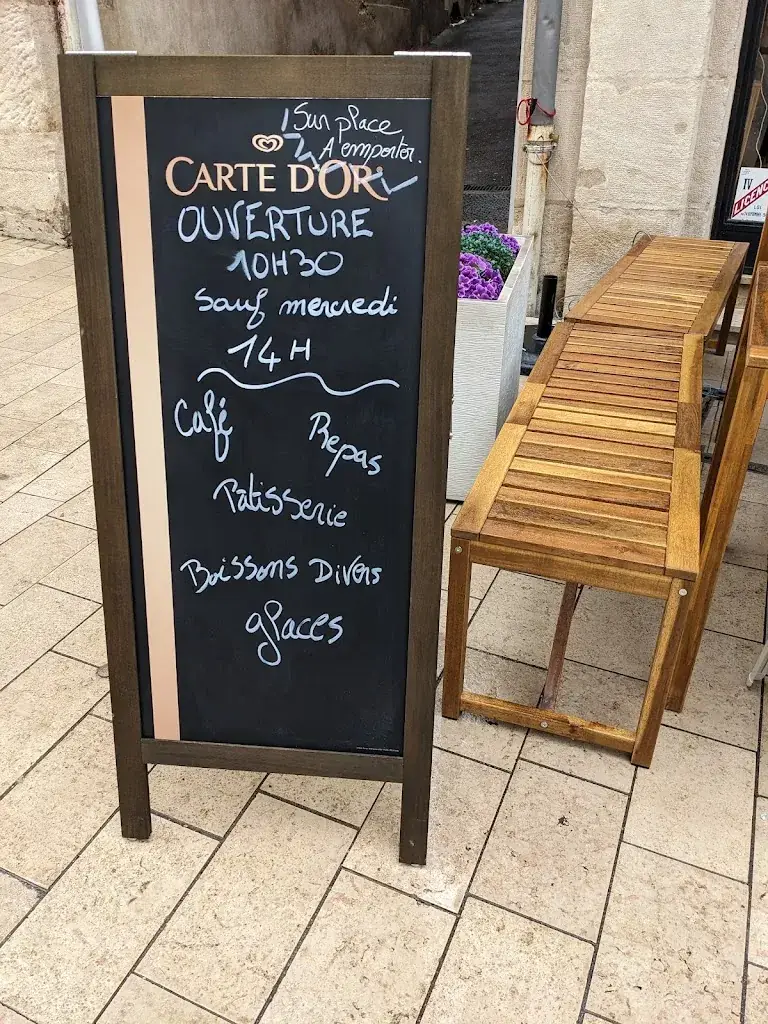 Sur place
A emporter.
CARTE D'OR
OUVERTURE
10H30
Sauf mercredi
14H
Café
Repas
Patisserie
Boissons Divers
glaces
IV
LICENC